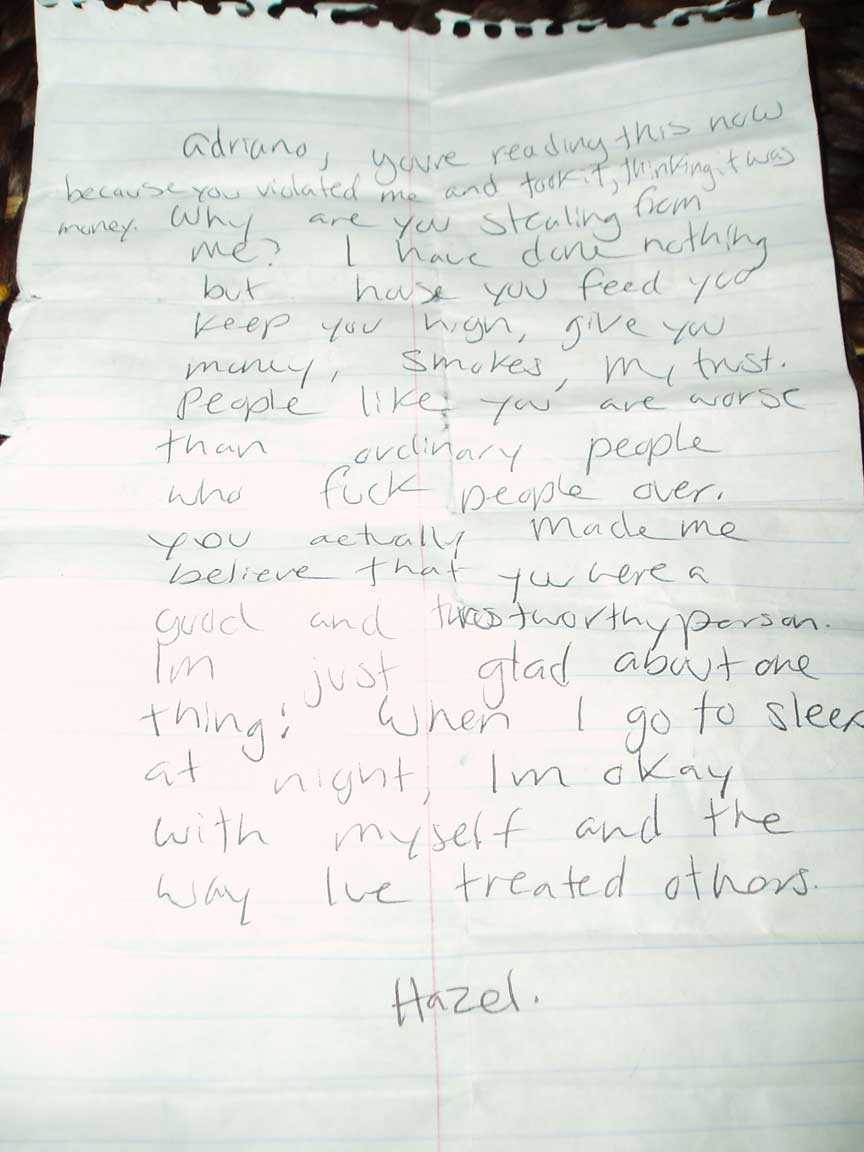 adriano, youre reading this now
because you violated me and took it, thinking it was
money. Why are you stealing from
me? I have done nothing
but house you feed you
keep you high, give you
money, smokes, my trust.
People like you are worse
than ordinary people
who fuck people over.
you actually made me
believe that you were a
good and trustworthy person.
Im just glad about one
thing: When I go to sleep
at night, Im okay
with myself and the
way Ive treated others.
Hazel.